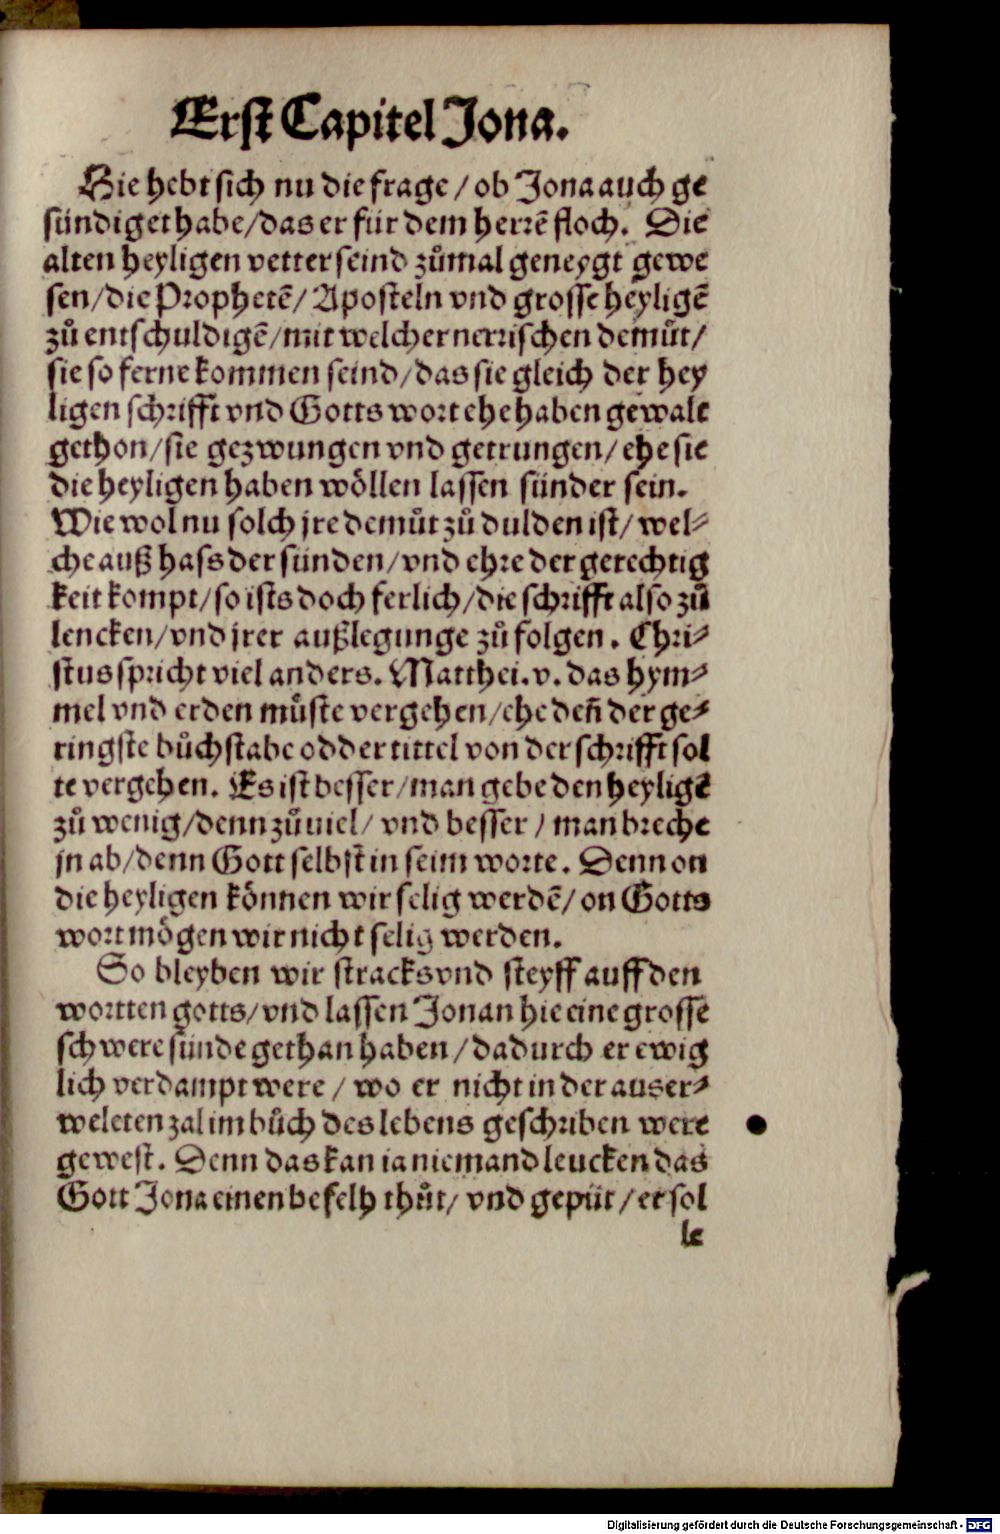 Erst Capitel Jona.
Hie hebt sich nu die frage / ob Jona auch ge
sündiget habe/das er für dem herrẽ floch. Die
alten heyligen vetter seind zůmal geneygt gewe
sen/die Prophetẽ/ Aposteln vnd grosse heyligẽ
zů entschuldigẽ/mit welcher nerrischen demůt/
sie so ferne kommen seind/das sie gleich der hey
ligen schrifft vnd Gotts wort ehe haben gewalt
gethon/sie gezwungen vnd getrungen/ehe sie
die heyligen haben wöllen lassen sünder sein.
Wie wol nu solch jre demůt zů dulden ist/wel⸗
che auß hass der sünden/vnd ehre der gerechtig
keit kompt/so ists doch ferlich/die schrifft also zů
lencken/vnd jrer außlegunge zů folgen. Chri⸗
stus spricht viel anders. Matthei.v. das hym⸗
mel vnd erden můste vergehen/ehe deñ der ge⸗
ringste bůchstabe odder tittel von der schrifft sol
te vergehen. Es ist besser/man gebe den heyligẽ
zů wenig/denn zů uiel/ vnd besser / man breche
jn ab/denn Gott selbst in seim worte. Denn on
die heyligen können wir selig werdẽ/on Gotts
wort mögen wir nicht selig werden.
So bleyben wir stracks vnd steyff auff den
wortten gotts/vnd lassen Jonan hie eine grosse
schwere sünde gethan haben /dadurch er ewig
lich verdampt were / wo er nicht in der auser⸗
weleten zal im bůch des lebens geschriben were
gewest. Denn das kan ia niemand leucken das
Gott Jona einen befelh thůt/ vnd gepüt /er sol
le
Digitalisierung gefördert durch die Deutsche Forschungsgemeinschaft - DFG